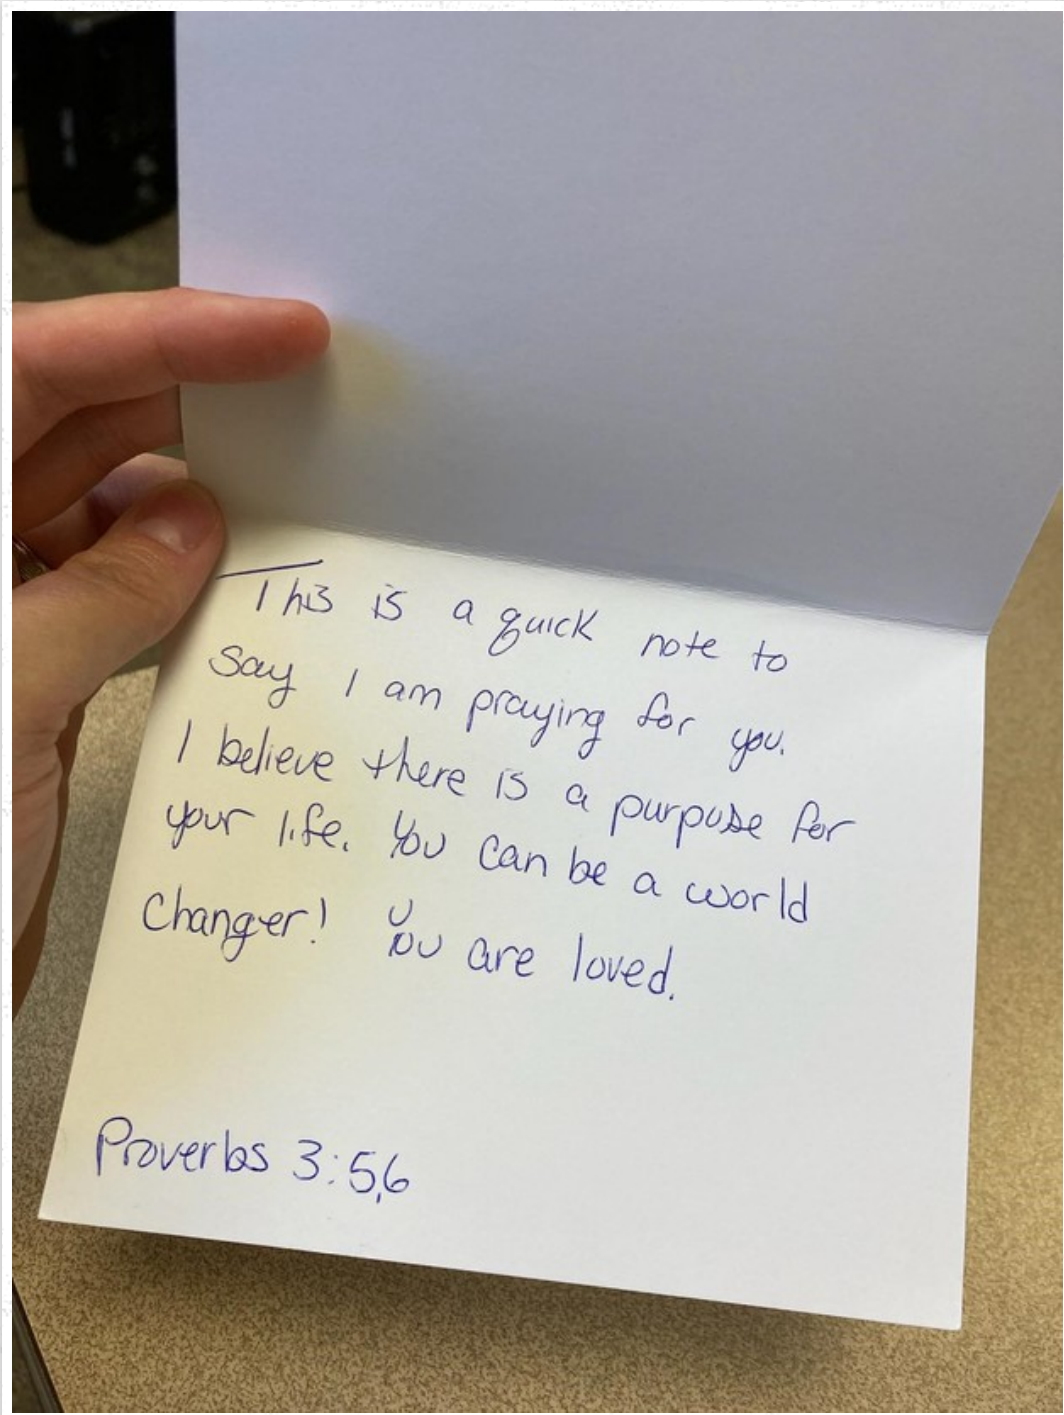 This is a quick note to
say I am praying for you.
I believe there is a purpose for
your life. You can be a world
changer! You are loved.
Proverbs 3:5,6